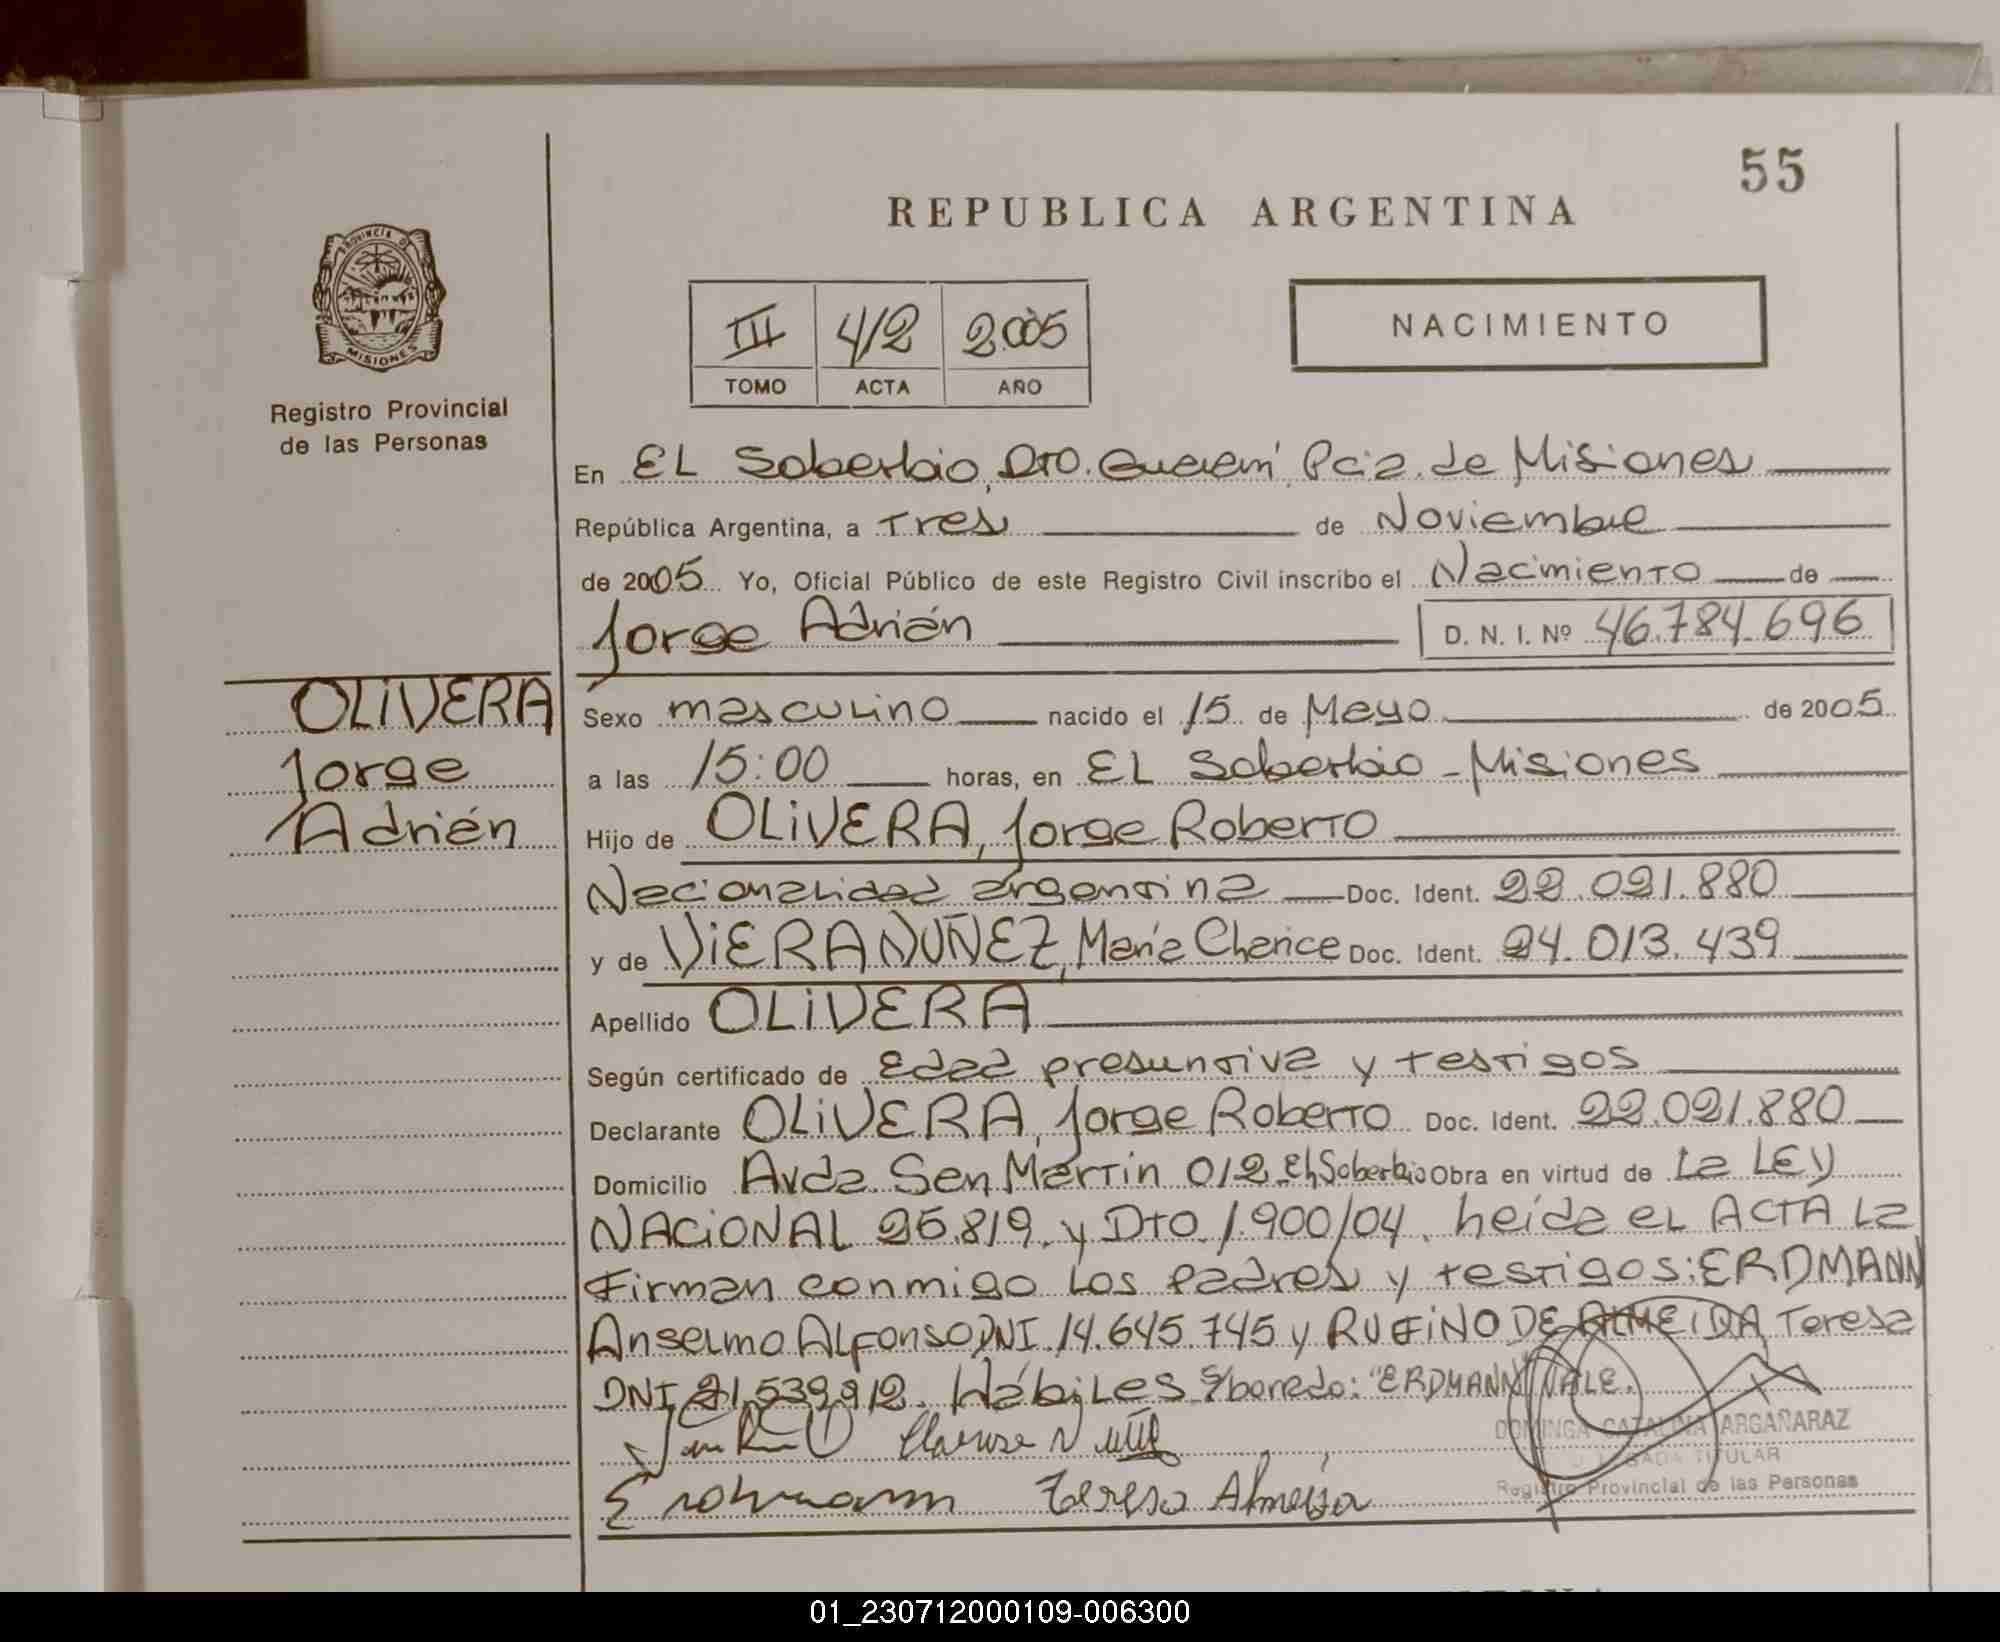 55
REPUBLICA ARGENTINA
PROVINCIA DE
MISIONES
Registro Provincial
de las Personas
III 412 2005
TOMO ACTA AÑO
NACIMIENTO
En EL Soberbio, Dto. Guaraní, Pcia. de Misiones
República Argentina, a Tres de Noviembre
de 2005 Yo, Oficial Público de este Registro Civil inscribo el Nacimiento de
Jorge Adrián D. N. I. Nº 46.784.696
OLIVERA
Jorge
Adrián
Sexo masculino nacido el 15 de Mayo de 2005
a las 15:00 horas, en EL Soberbio - Misiones
Hijo de OLIVERA, Jorge Roberto
Nacionalidad argentina Doc. Ident. 22.021.880
y de VIERA NUÑEZ, María Clarice Doc. Ident. 24.013.439
Apellido OLIVERA
Según certificado de Edad presuntiva y testigos
Declarante OLIVERA, Jorge Roberto Doc. Ident. 22.021.880
Domicilio Avda. San Martín 012 El Soberbio Obra en virtud de La LEY
NACIONAL 25.819 y Dto. 1.900/04. Leída el ACTA La
Firman conmigo Los Padres y testigos: ERDMANN
Anselmo Alfonso DNI 14.645.745 y RUFINO DE ALMEIDA Teresa
DNI 21.539.912. Hábiles S/borrado: "ERDMANN" VALE.
Clarise Nuñe
Erdmann Teresa Almeida
DOMINGA CATALINA ARGAÑARAZ
TITULAR
Registro Provincial de las Personas
01_230712000109-006300